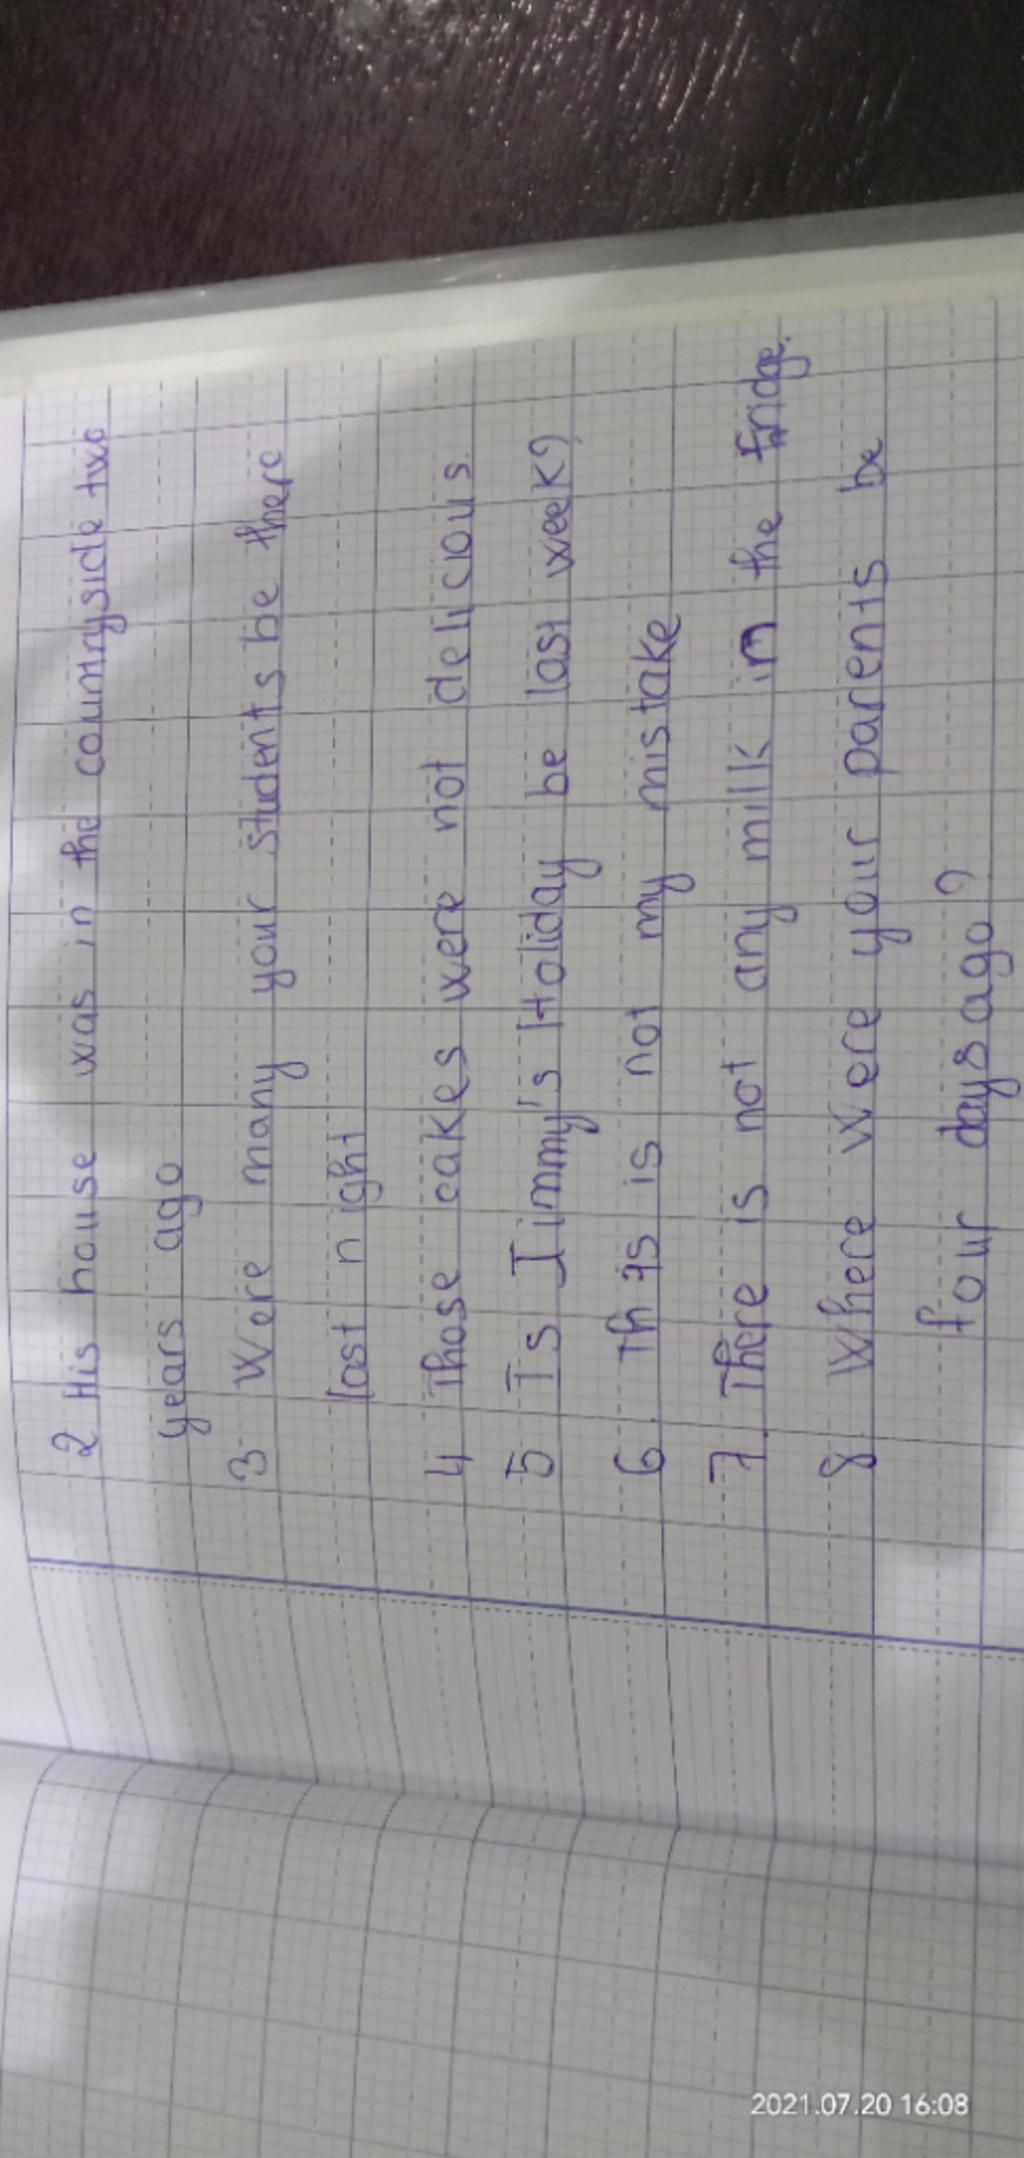 2 His house was in the countryside two
years ago
3 Were many your students be there
last night
4 Those cakes were not delicious
5 Is Jimmy's Holiday be last week?
6. This is not my mistake
7. There is not any milk in the fridge.
8 Where were your parents be
four days ago?
2021.07.20 16:08